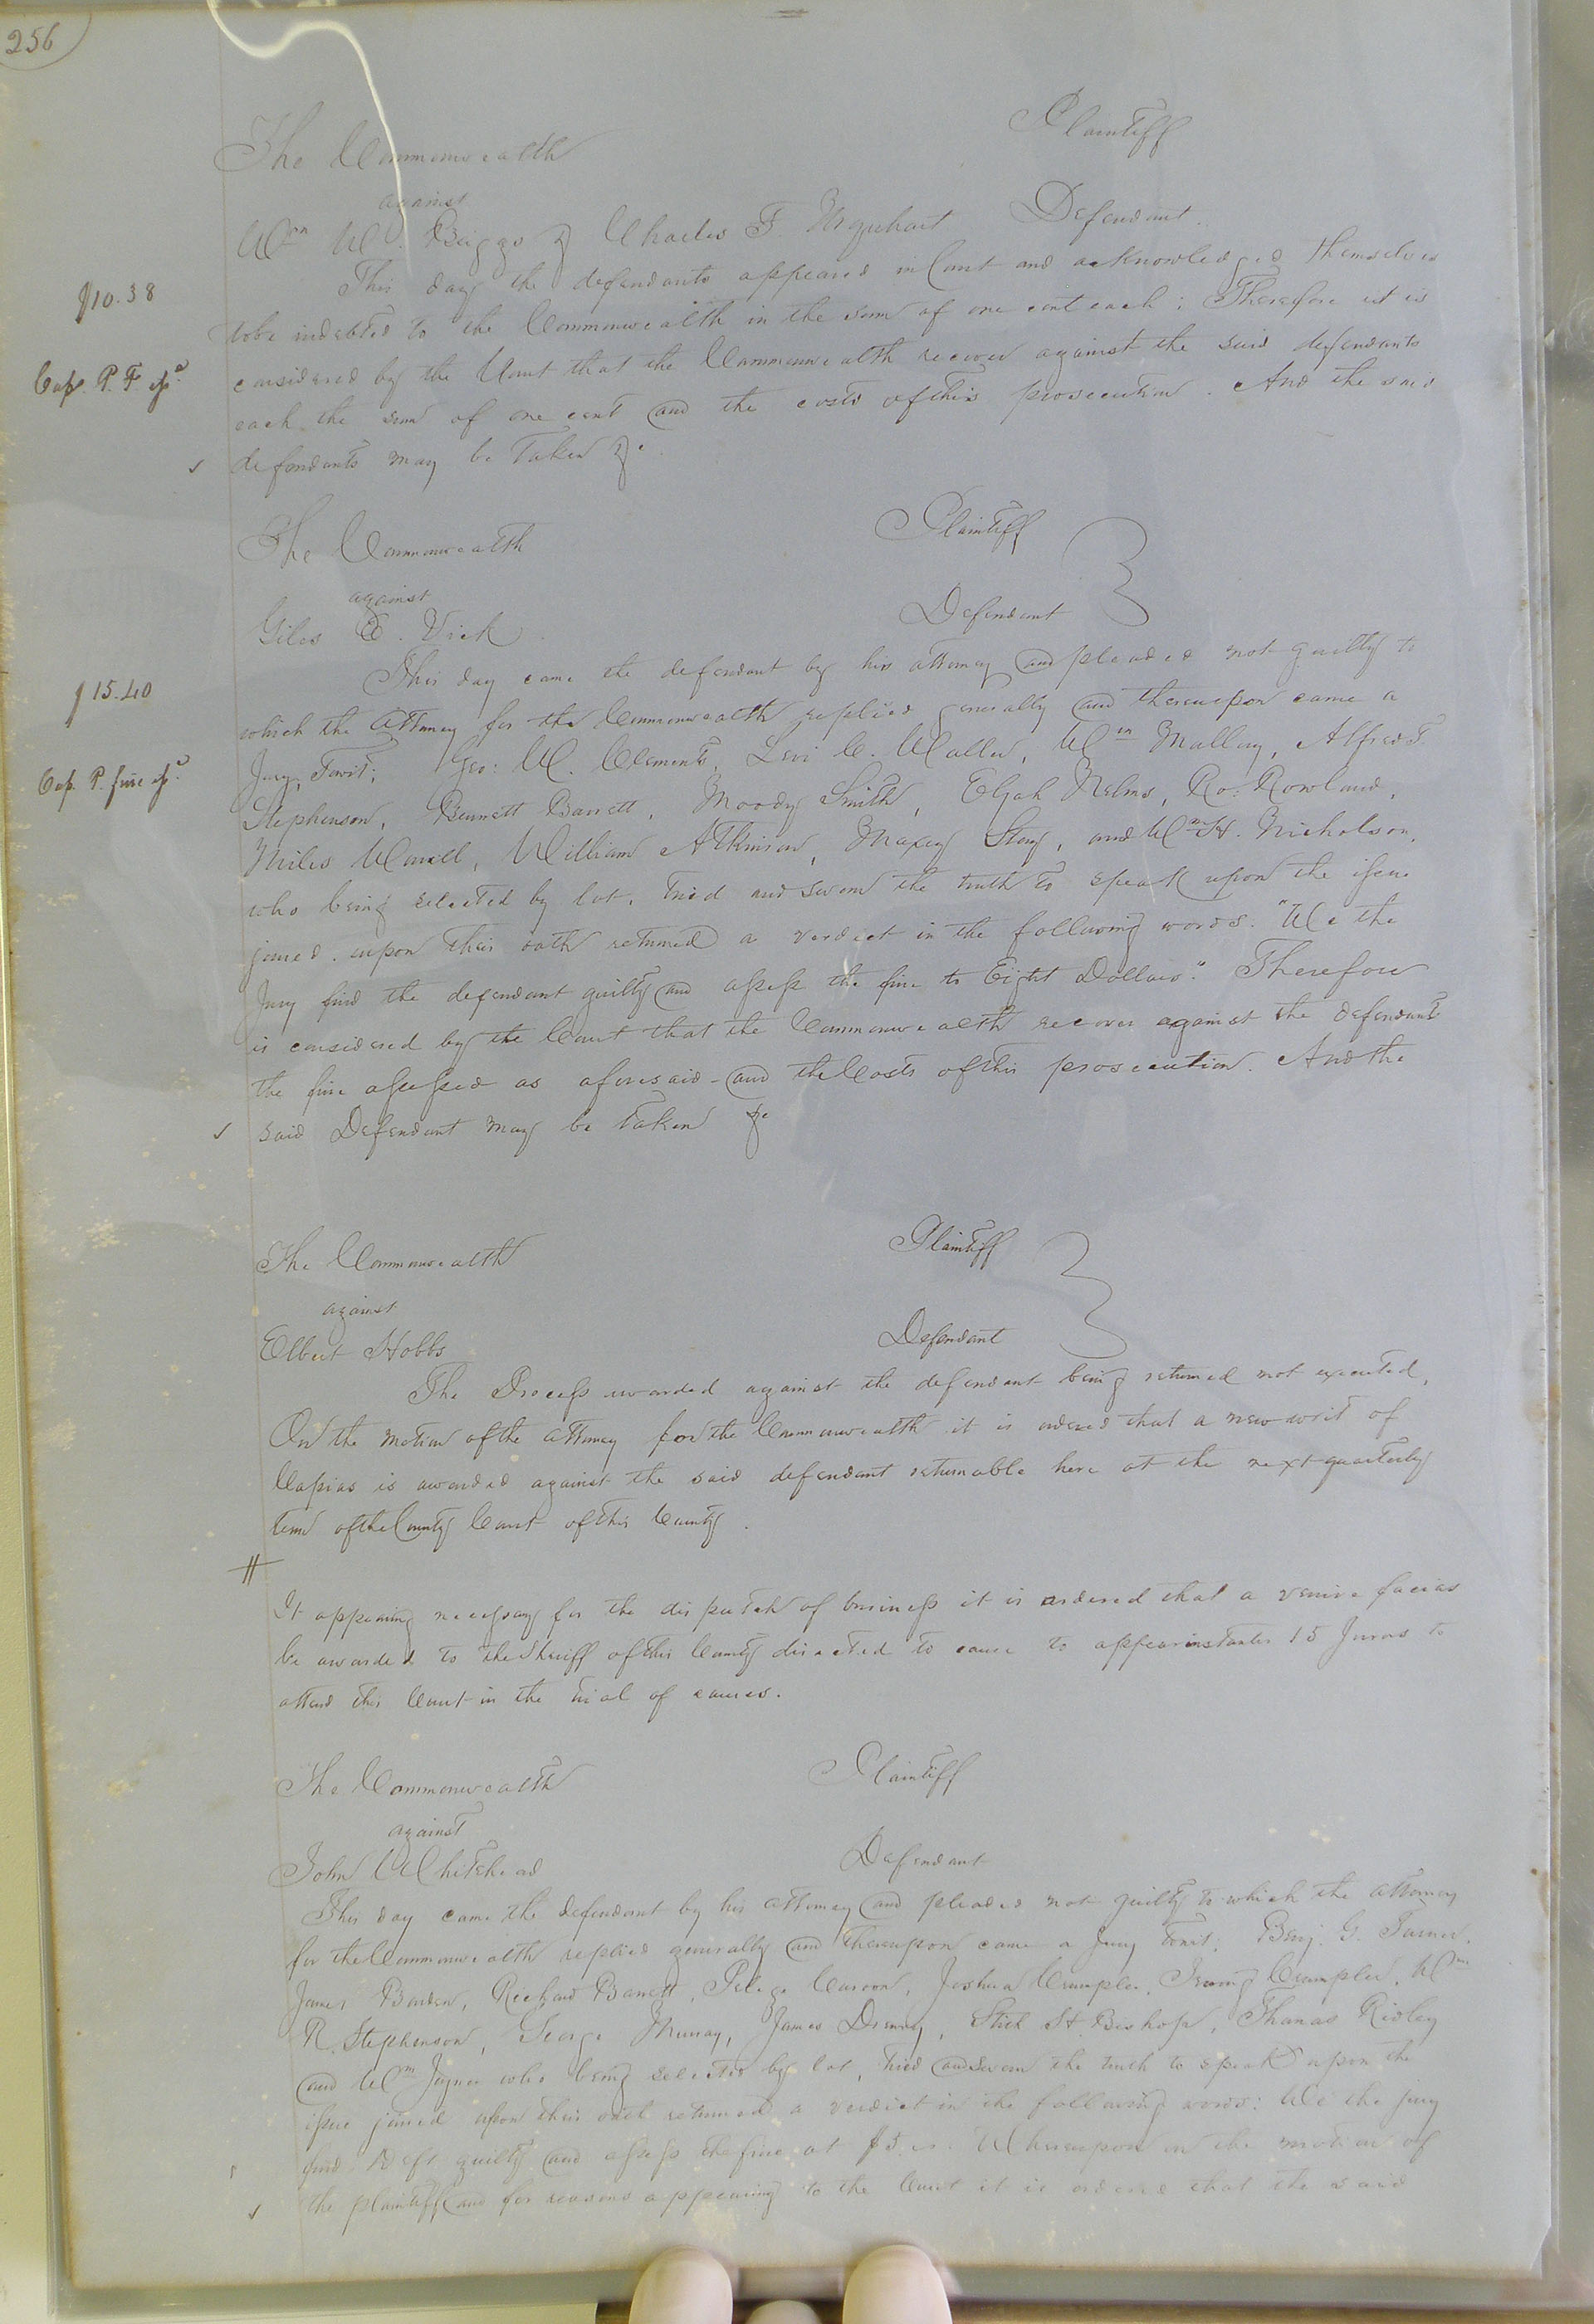 256
The Commonwealth Plaintiff
against
Wm W. Briggs & Charles F. Urquhart Defendant.
This day the defendants appeared in Court and acknowledged themselves
$10.38
to be indebted to the Commonwealth in the sum of one cent each; Therefore it is
considered by the Court that the Commonwealth recover against the said defendants
Cap. P. F. issd.
each the sum of one cent and the costs of this prosecution. And the said
defendants may be taken &c.
The Commonwealth Plaintiff
against
Giles E. Vick Defendant
This day came the defendant by his attorney and pleaded not guilty to
$15.40
which the attorney for the Commonwealth replied generally and thereupon came a
Jury, Towit; Geo: W. Clements, Levi C. Waller, Wm Mallory, Alfred T
Cap. P. fine issd.
Stephenson, Bennett Barrett, Moody Smith, Elijah Nelms, Ro: Rowland,
Miles Worrell, William Atkinson, Maxey Story, and Wm H. Nicholson,
who being selected by lot, tried and sworn the truth to speak upon the issue
joined, upon their oath returned a verdict in the following words. "We the
Jury find the defendant guilty and assess the fine to Eight Dollars." Therefore
is considered by the Court that the Commonwealth recover against the defendant
the fine assessed as aforesaid - and the Costs of this prosecution. And the
said Defendant may be taken &c
The Commonwealth Plaintiff
against
Elbert Hobbs Defendant
The Process awarded against the defendant being returned not executed,
On the motion of the attorney for the Commonwealth it is ordered that a new writ of
Capias is awarded against the said defendant returnable here at the next quarterly
term of the County Court of this County.
It appearing necessary for the dispatch of business it is ordered that a venire facias
be awarded to the Sheriff of this County directed to cause to appear instanter 15 Jurors to
attend this Court in the trial of causes.
The Commonwealth Plaintiff
against
John Whitehead Defendant
This day came the defendant by his attorney and pleaded not guilty to which the attorney
for the Commonwealth replied generally and thereupon came a Jury towit; Benj. G. Turner,
James Barden, Richard Barrett, Joshua Crumpler, Irving Crumpler, Wm
R. Stephenson, George Murray, James Drewry, Stith H. Bishop, Thomas Ridley
and Wm Joyner who being selected by lot, tried and sworn the truth to speak upon the
issue joined upon their oath returned a verdict in the following words: We the jury
find Deft guilty and assess the fine at $5. Whereupon on the motion of
the plaintiff and for reasons appearing to the Court it is ordered that the said